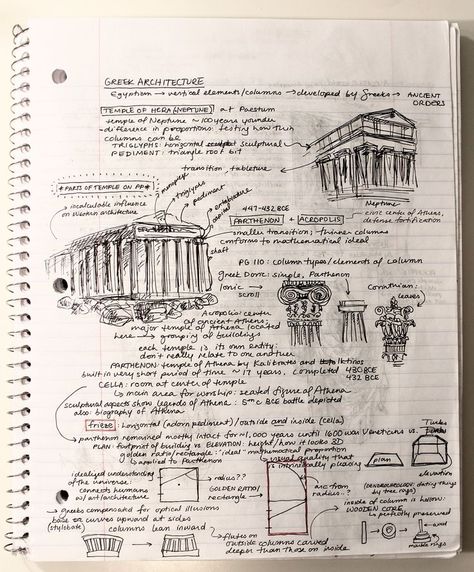 GREEK ARCHITECTURE
Egyptian → vertical elements/columns → developed by Greeks → ANCIENT ORDERS
TEMPLE OF HERA (NEPTUNE) at Paestum
temple of Neptune ~100 years younger
difference in proportions: testing how thin
columns can be
TRIGLYPHS: horizontal sculptural
PEDIMENT: triangle root bit
transition, tableture
* PARTS OF TEMPLE ON PP *
triglyphs
pediment
entablature
shaft
incalculable influence
on Western architecture
Neptune
447-432 BCE
PARTHENON + ACROPOLIS → civic center of Athens,
defense fortification
smaller transition; thinner columns
conforms to mathematical ideal
PG 110: column types/elements of column
Greek Doric: simple, Parthenon
Ionic →
scroll
Corinthian:
leaves
Acropolis: center
of ancient Athens;
major temple of Athena located
here → grouping of buildings
each temple is its own entity:
don't really relate to one another
PARTHENON: temple of Athena by Kalikrates and Iktinos
built in very short period of time ~ 17 years, completed 432 BCE
CELLA: room at center of temple
→ main area for worship: seated figure of Athena
sculptural aspects show legends of Athena: 5th c BCE battle depicted
also: biography of Athena
frieze: horizontal (adorn pediment)/outside and inside (cella)
→ parthenon remained mostly intact for ~1,000 years until 1600 war: Venetians vs. Turks
PLAN: footprint of building vs ELEVATION: height/how it looks 3D
golden ratio/rectangle: "ideal" mathematical proportion
→ applied to Parthenon
→ visual quality that
is intrinsically pleasing
plan
elevation
idealized understanding
of the universe:
connects humans
w/ art/architecture
→ radius??
GOLDEN RATIO/
rectangle →
arc from
radius??
(DENDROCHRONOLOGY: dating things
by tree rings)
inside of column is hollow:
WOODEN CORE
→ perfectly preserved
→ greeks compensated for optical illusions
base or curves upward at sides
(stylobate)
columns lean inward
→ flutes on
outside columns carved
deeper than those on inside
wood
marble rings